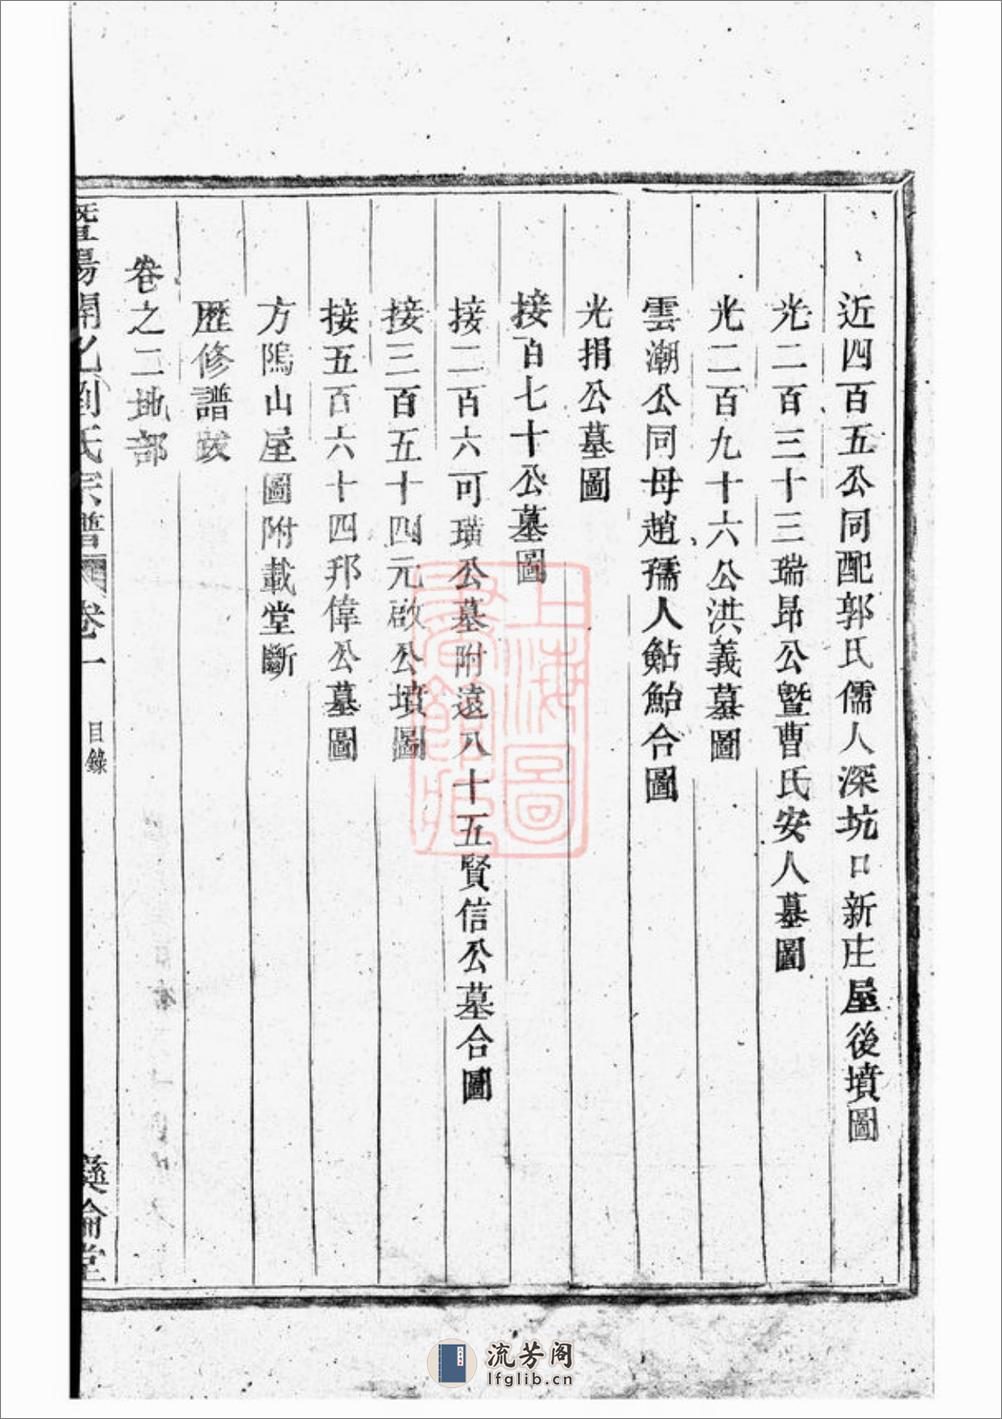 近四百五公同配郭氏儒人深坑口新庄屋後墳圖
光二百三十三瑞昂公暨曹氏安人墓圖
光二百九十六公洪義墓圖
雲潮公同母趙孺人鮎鮐合圖
光捐公墓圖
接百七十公墓圖
接二百六可璜公墓附遠八十五賢信公墓合圖
接三百五十四元啟公墳圖
接五百六十四邦偉公墓圖
方隝山屋圖附載堂斷
歷修譜跋
卷之二地部
暨陽開化劉氏宗譜 卷一 目錄 彝倫堂
上海圖
書館藏
流芳阁
lfglib.cn